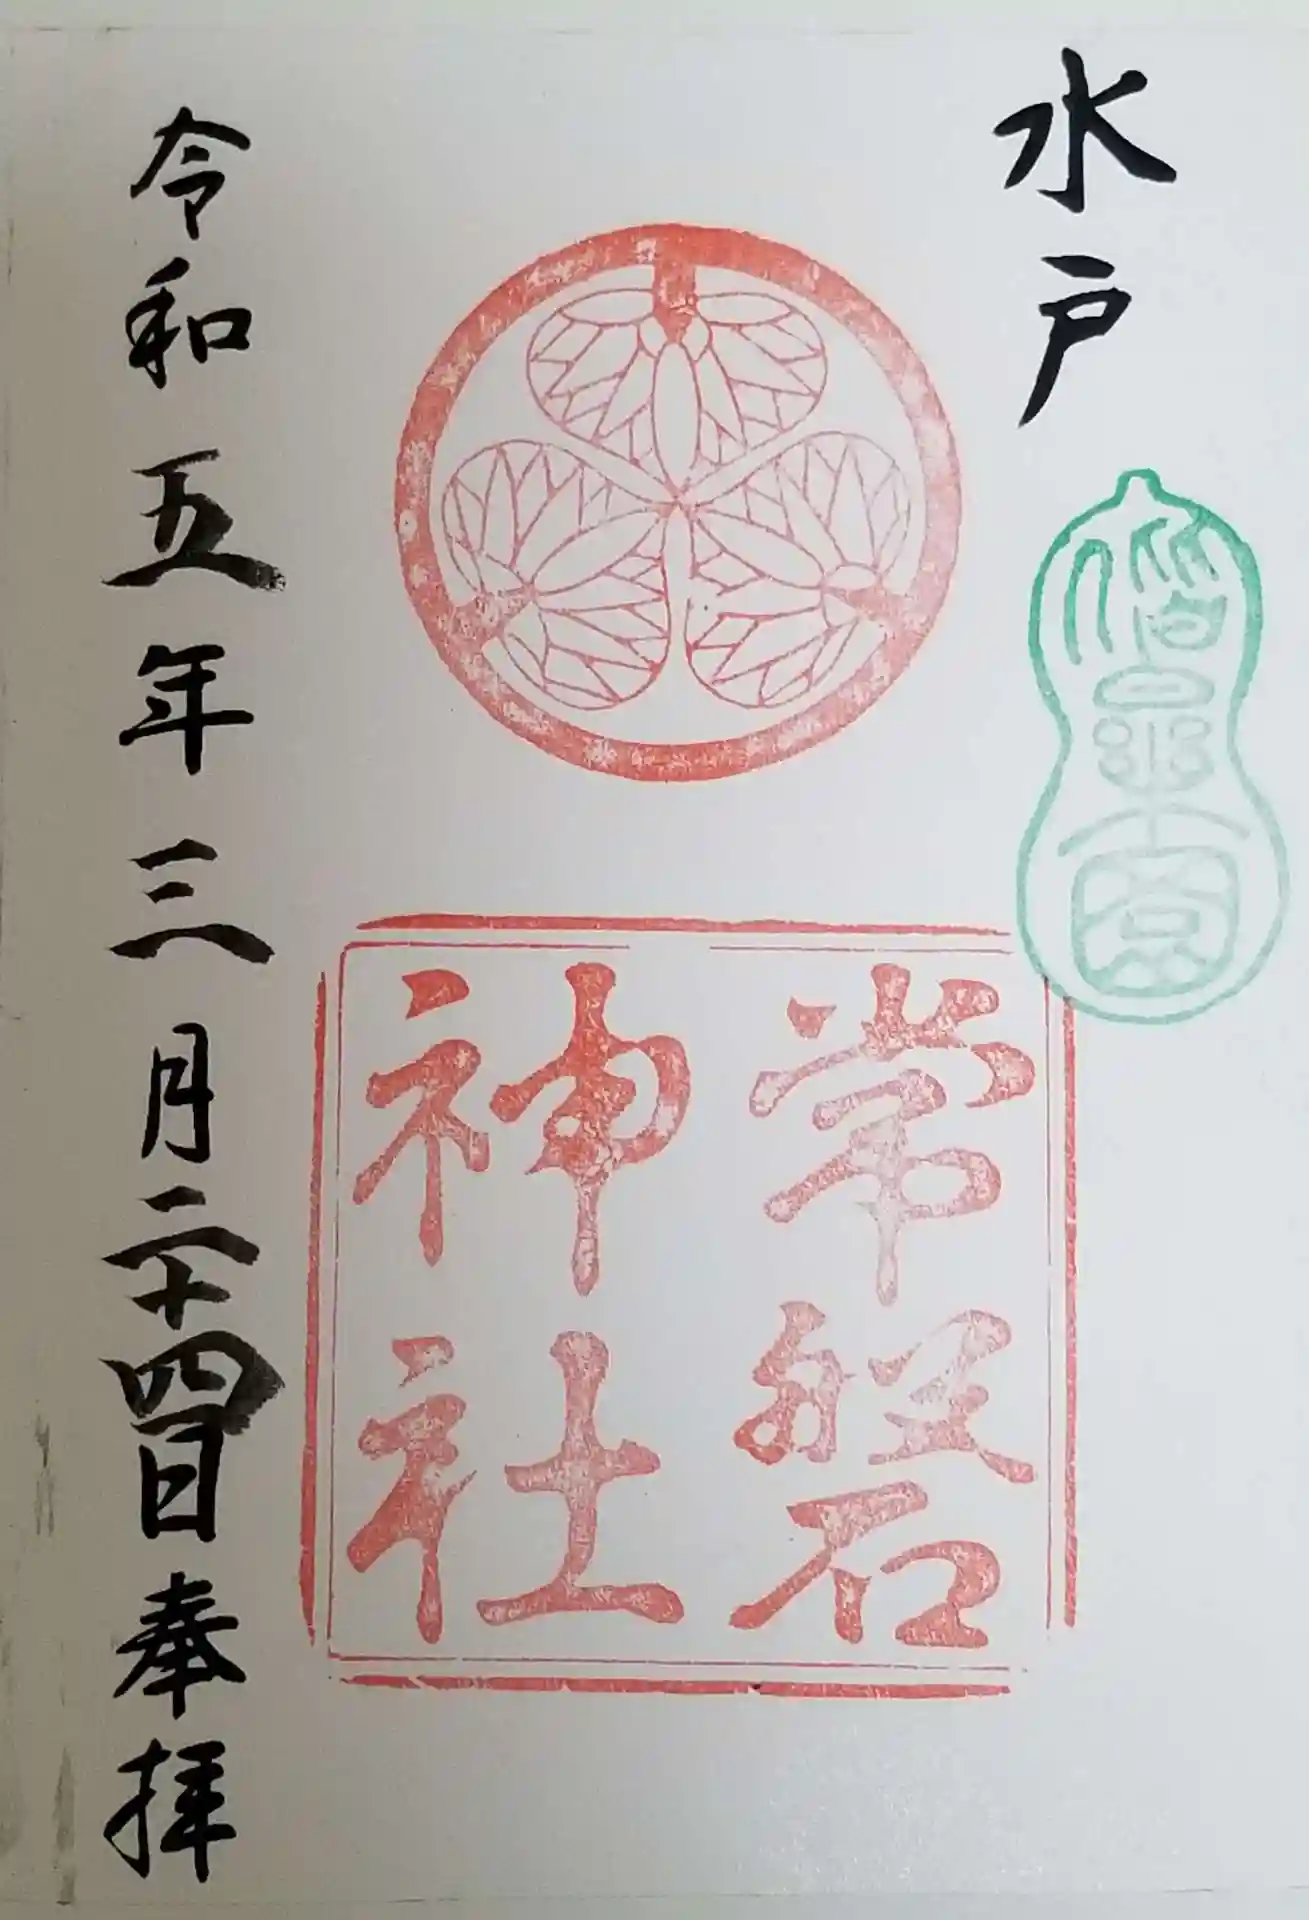 水戸
偕楽園
常磐
神社
令和五年三月二十四日奉拝